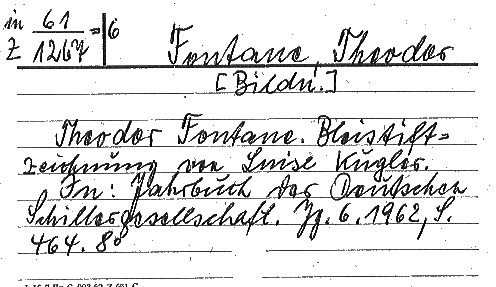 in 61 = 6
Z 1267
Fontane, Theodor
[Bildn.]
Theodor Fontane. Bleistift=
zeichnung von Luise Kugler.
In: Jahrbuch der Deutschen
Schillergesellschaft. Jg. 6. 1962, S.
464. 8°